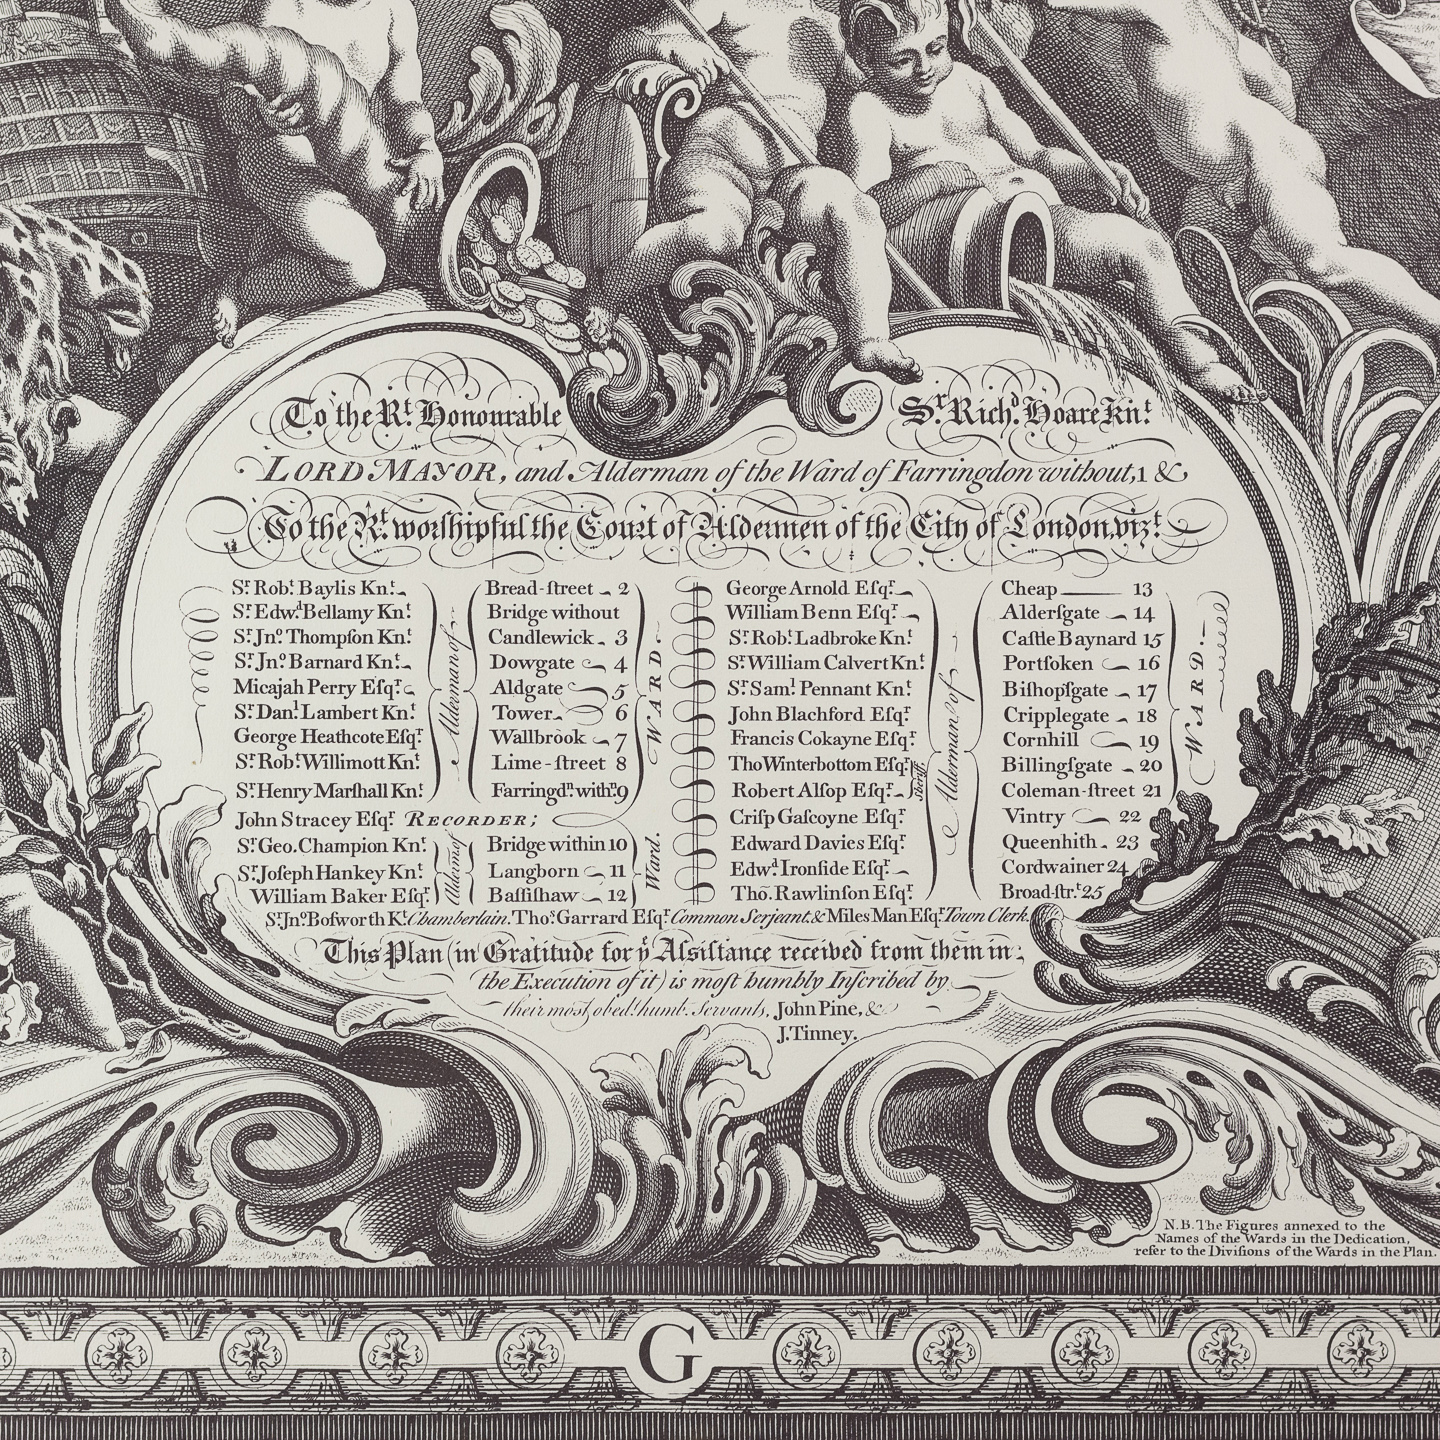 To the Rt. Honourable Sr. Richd. Hoare Knt.
LORD MAYOR, and Alderman of the Ward of Farringdon without, 1 &
To the Rt. worshipful the Court of Aldermen of the City of London, vizt.
Sr. Robt. Baylis Knt. Bread-ſtreet 2 George Arnold Eſqr. Cheap 13
Sr. Edwd. Bellamy Knt. Bridge without William Benn Eſqr. Alderſgate 14
Sr. Jno. Thompſon Knt. Candlewick 3 Sr. Robt. Ladbroke Knt. Caſtle Baynard 15
Sr. Jno. Barnard Knt. Dowgate 4 Sr. William Calvert Knt. Portſoken 16
Micajah Perry Eſqr. Aldgate 5 Sr. Saml. Pennant Knt. Biſhopſgate 17
Sr. Danl. Lambert Knt. Tower 6 John Blachford Eſqr. Cripplegate 18
George Heathcote Eſqr. Wallbrook 7 Francis Cokayne Eſqr. Cornhill 19
Sr. Robt. Willimott Knt. Lime-ſtreet 8 Tho Winterbottom Eſqr. Billingſgate 20
Sr. Henry Marſhall Knt. Farringdn. withn. 9 Robert Alſop Eſqr. Coleman-ſtreet 21
Alderman of
WARD.
Sheriff
Alderman of
WARD.
John Stracey Eſqr. RECORDER; Criſp Gaſcoyne Eſqr. Vintry 22
Sr. Geo. Champion Knt. Bridge within 10 Edward Davies Eſqr. Queenhith 23
Sr. Joſeph Hankey Knt. Langborn 11 Edwd. Ironſide Eſqr. Cordwainer 24
William Baker Eſqr. Baſſiſhaw 12 Tho. Rawlinſon Eſqr. Broad-ſtrt. 25
Ward.
Sr. Jno. Boſworth Kt. Chamberlain. Thos. Garrard Eſqr. Common Serjeant. & Miles Man Eſqr. Town Clerk.
This Plan (in Gratitude for ye Aſsiſtance received from them in
the Execution of it) is moſt humbly Inſcribed by
their most obedt. humb. Servants, John Pine, &
J. Tinney.
N.B. The Figures annexed to the
Names of the Wards in the Dedication,
refer to the Diviſions of the Wards in the Plan.
G